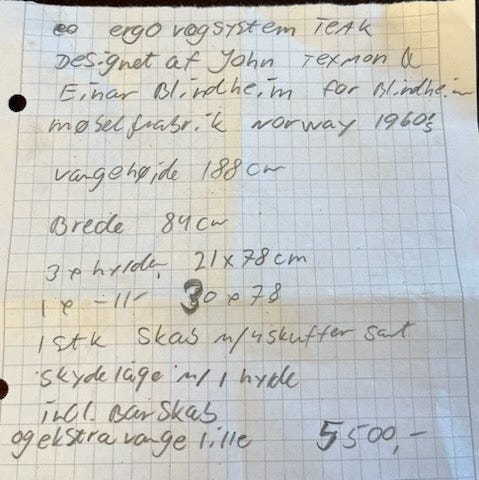 ergo vegsystem Teak
Designet af John Texmon &
Einar Blindheim for Blindheim
møbelfrabrik Norway 1960's
vangehøjde 188 cm
Brede 84 cm
3 x hylde, 21 x 78 cm
1 x -11- 30 x 78
1 stk skab m/4 skuffer samt
skydelåge m/1 hylde
incl. Barskab
og ekstra vange lille 5500,-